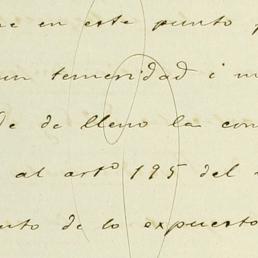 en este punto
un temeridad i
de lleno la con
al arto 195 del
de lo expuesto